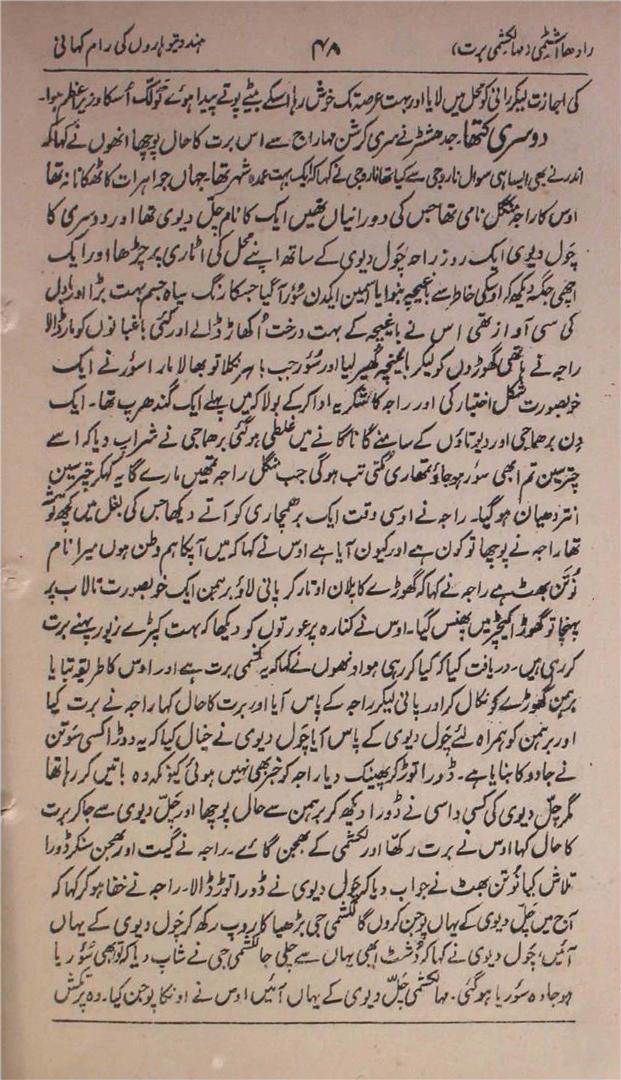 رادھا اشٹمی (مہالکشمی برت) ۴۸ ہندو تیوہاروں کی رام کہانی
کی اجازت لیکر رانی کو محل میں لایا اور بہت عرصہ تک خوش رہا اسکے بیٹے پوتے پیدا ہوئے تولک اُسکا وزیر اعظم ہوا۔
دوسری کتھا۔ جدھشٹر نے سری کرشن مہاراج سے اس برت کا حال پوچھا انھوں نے کہا کہ
اندر نے بھی ایسا ہی سوال نارد جی سے کیا تھا نارد جی نے کہا کہ ایک بہت عمدہ شہر تھا۔ جہاں جواہرات کا ٹھکانا نہ تھا
اوس کا راجہ منگل نامی تھا جس کی دو رانیاں تھیں ایک کا نام چِلّ دیوی تھا اور دوسری کا
چَول دیوی ایک روز راجہ چَول دیوی کے ساتھ اپنے محل کی اٹاری پر چڑھا اور ایک
اچھی جگہ دیکھ کر اوسکی خاطر سے باغیچہ بنوایا اسمین ایکدن سُوَر آگیا جسکا رنگ سیاہ جسم بہت بڑا اور بادل
کی سی آواز تھی اس نے باغیچہ کے بہت درخت اُکھاڑ ڈالے اور کئی باغبانوں کو مار ڈالا
راجہ نے ہاتھی گھوڑوں کو لیکر باغیچہ گھیر لیا اور سُوَر جب باہر نکلا تو بھالا مارا سوَر نے ایک
خوبصورت شکل اختیار کی اور راجہ کا شکریہ ادا کرکے بولا کہ میں پہلے ایک گندھرب تھا۔ ایک
دِن برھما جی اور دیوتاؤں کے سامنے گانا گانے میں غلطی ہوگئی برھما جی نے شراپ دیا کہ اسے
چترسین تم ابھی سور ہو جاؤ تمھاری مُکتی تب ہوگی جب منگل راجہ تمھیں مارے گا یہ کہکر چترسین
انتردھیان ہوگیا۔ راجہ نے اوسی وقت ایک برھمچاری کو آتے دیکھا جس کی بغل میں کچھ توشہ
تھا راجہ نے پوچھا تو کون ہے اور کیون آیا ہے اوس نے کہا کہ میں آپکا ہم وطن ہوں میرا نام
نُوتَن بھٹ ہے راجہ نے کہا کہ گھوڑے کا پلان اوتار کر پانی لاؤ برہمن ایک خوبصورت تالاب پر
پہنچا تو گھوڑا کیچڑ میں پھنس گیا۔ اوس نے کنارہ پر عورتوں کو دیکھا کہ بہت کپڑے زیور پہنے برت
کر رہی ہیں۔ دریافت کیا کہ کیا کر رہی ہو اونھوں نے کہا کہ یہ لکشمی برت ہے اور اوس کا طریقہ بتایا
برہمن گھوڑے کو نکال کر اور پانی لیکر راجہ کے پاس آیا اور برت کا حال کہا راجہ نے برت کیا
اور برہمن کو ہمراہ لئے چَول دیوی کے پاس آیا چَول دیوی نے خیال کیا کہ یہ ڈورا کسی سَوتن
نے جادو کا بنایا ہے۔ ڈورا توڑ کر پھینک دیا راجہ کو خبر بھی نہیں ہوئی کیونکہ وہ باتیں کر رہا تھا
مگر چِلّ دیوی کی کسی داسی نے ڈورا دیکھ کر برہمن سے حال پوچھا اور چِلّ دیوی سے جا کر برت
کا حال کہا اوس نے برت رکھّا اور لکشمی کے بھجن گائے۔ راجہ نے گیت اور بھجن سنکر ڈورا
تلاش کیا نُوتن بھٹ نے جواب دیا کہ چَول دیوی نے ڈورا توڑ ڈالا۔ راجہ نے خفا ہو کر کہا کہ
آج میں چِلّ دیوی کے یہاں پوجن کروں گا لکشمی جی بڑھیا کا روپ رکھ کر چَول دیوی کے یہاں
آئیں، چَول دیوی نے کہا کہ دُشٹ ابھی یہاں سے چلی جا لکشمی جی نے شاپ دیا کہ تو بھی سُوَریا
ہو جا وہ سُوَریا ہوگئی۔ مہا لکشمی چِلّ دیوی کے یہاں آئیں اوس نے اونکا پوجن کیا۔ وہ پرکش